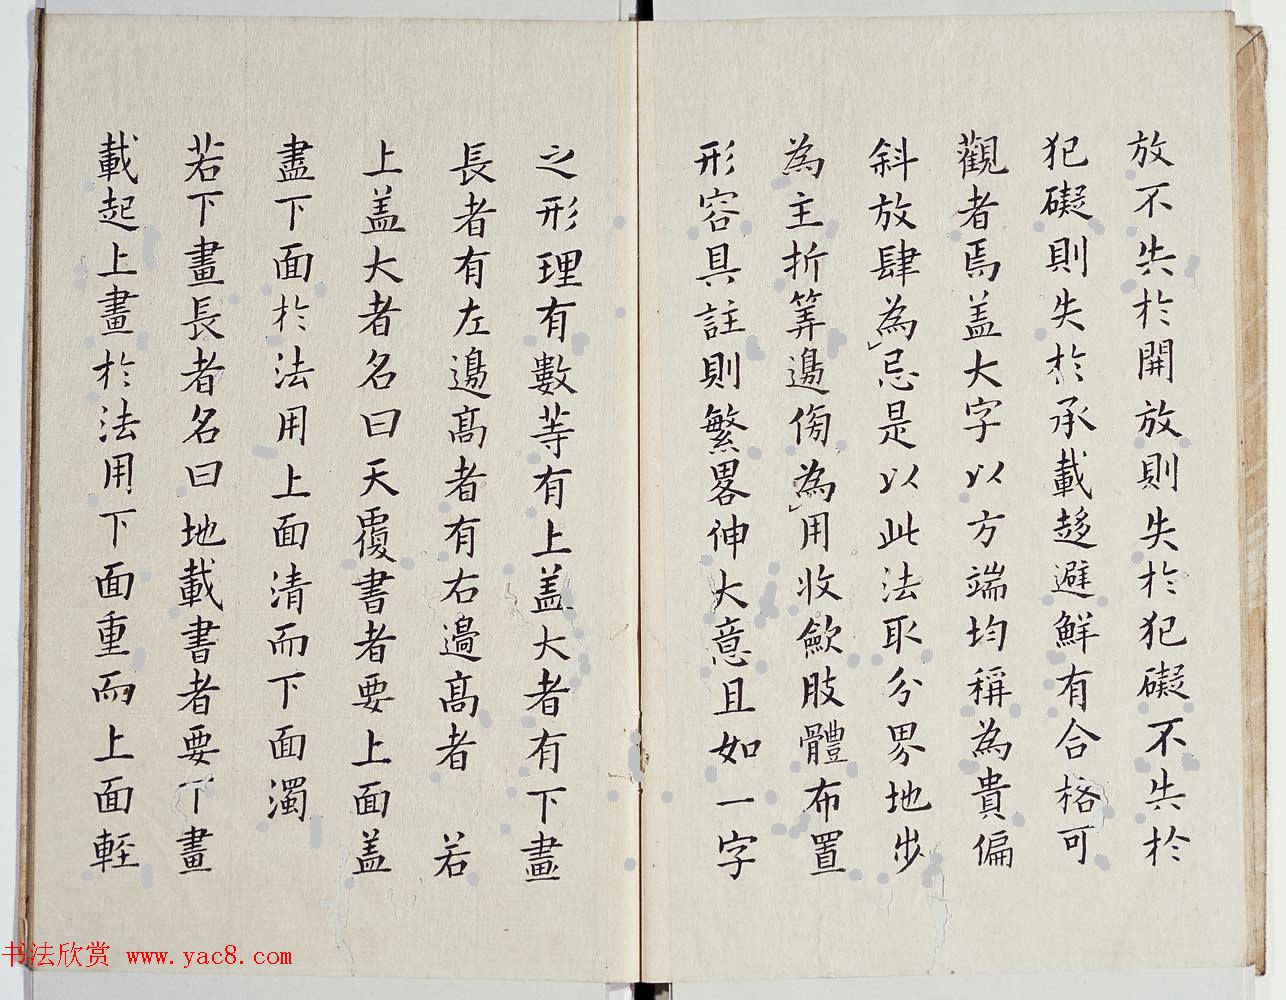 放不失於開放則失於犯礙不失於
犯礙則失於承載趍避鮮有合格可
觀者焉盖大字以方端均稱為貴偏
斜放肆為忌是以此法取分界地步
為主折筭邊傍為用收歛肢體布置
形容具註則繁畧伸大意且如一字
之形理有數等有上盖大者有下畫
長者有左邊髙者有右邊髙者 若
上盖大者名曰天覆書者要上面盖
盡下面於法用上面清而下面濁
若下畫長者名曰地載書者要下畫
載起上畫於法用下面重而上面輕
书法欣赏 www.yac8.com